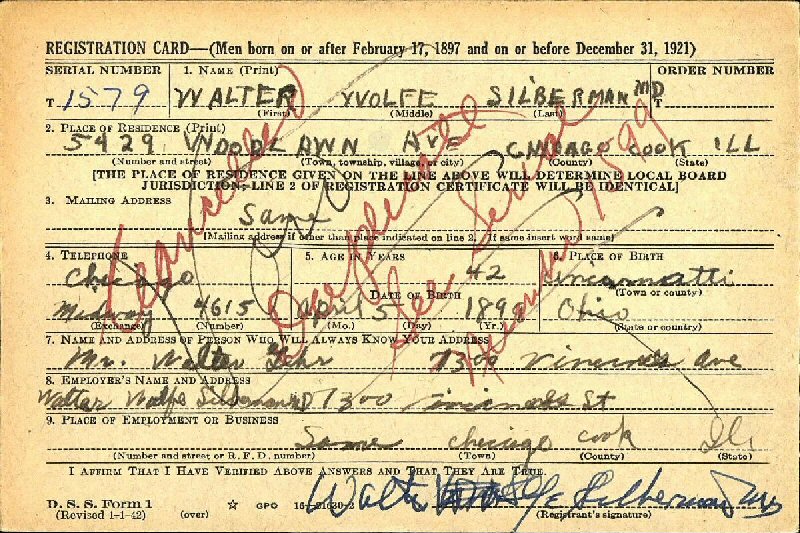 REGISTRATION CARD—(Men born on or after February 17, 1897 and on or before December 31, 1921)
SERIAL NUMBER 1. NAME (Print) ORDER NUMBER
T 1579 WALTER WOLFE SILBERMAN MD T
(First) (Middle) (Last)
2. PLACE OF RESIDENCE (Print)
5429 WOODLAWN AVE CHICAGO COOK ILL
(Number and street) (Town, township, village, or city) (County) (State)
[THE PLACE OF RESIDENCE GIVEN ON THE LINE ABOVE WILL DETERMINE LOCAL BOARD
JURISDICTION; LINE 2 OF REGISTRATION CERTIFICATE WILL BE IDENTICAL]
3. MAILING ADDRESS
Same
[Mailing address if other than place indicated on line 2. If same insert word same]
4. TELEPHONE 5. AGE IN YEARS 6. PLACE OF BIRTH
Chicago 42 Cincannatti
DATE OF BIRTH (Town or county)
Midway 4615 April 5 1899 Ohio
(Exchange) (Number) (Mo.) (Day) (Yr.) (State or country)
7. NAME AND ADDRESS OF PERSON WHO WILL ALWAYS KNOW YOUR ADDRESS
Mr. Walter 7300 Vincennes Ave
8. EMPLOYER'S NAME AND ADDRESS
Walter Wolfe Silberman MD 7300 St
9. PLACE OF EMPLOYMENT OR BUSINESS
Same Chicago Cook Ill
(Number and street or R. F. D. number) (Town) (County) (State)
I AFFIRM THAT I HAVE VERIFIED ABOVE ANSWERS AND THAT THEY ARE TRUE.
D. S. S. Form 1
(Revised 1-1-42) (over) ☆ GPO 16—21630-2 Walter Wolfe Silberman
(Registrant's signature)
Cancelled
Duplicate
See Serial
Number 1599